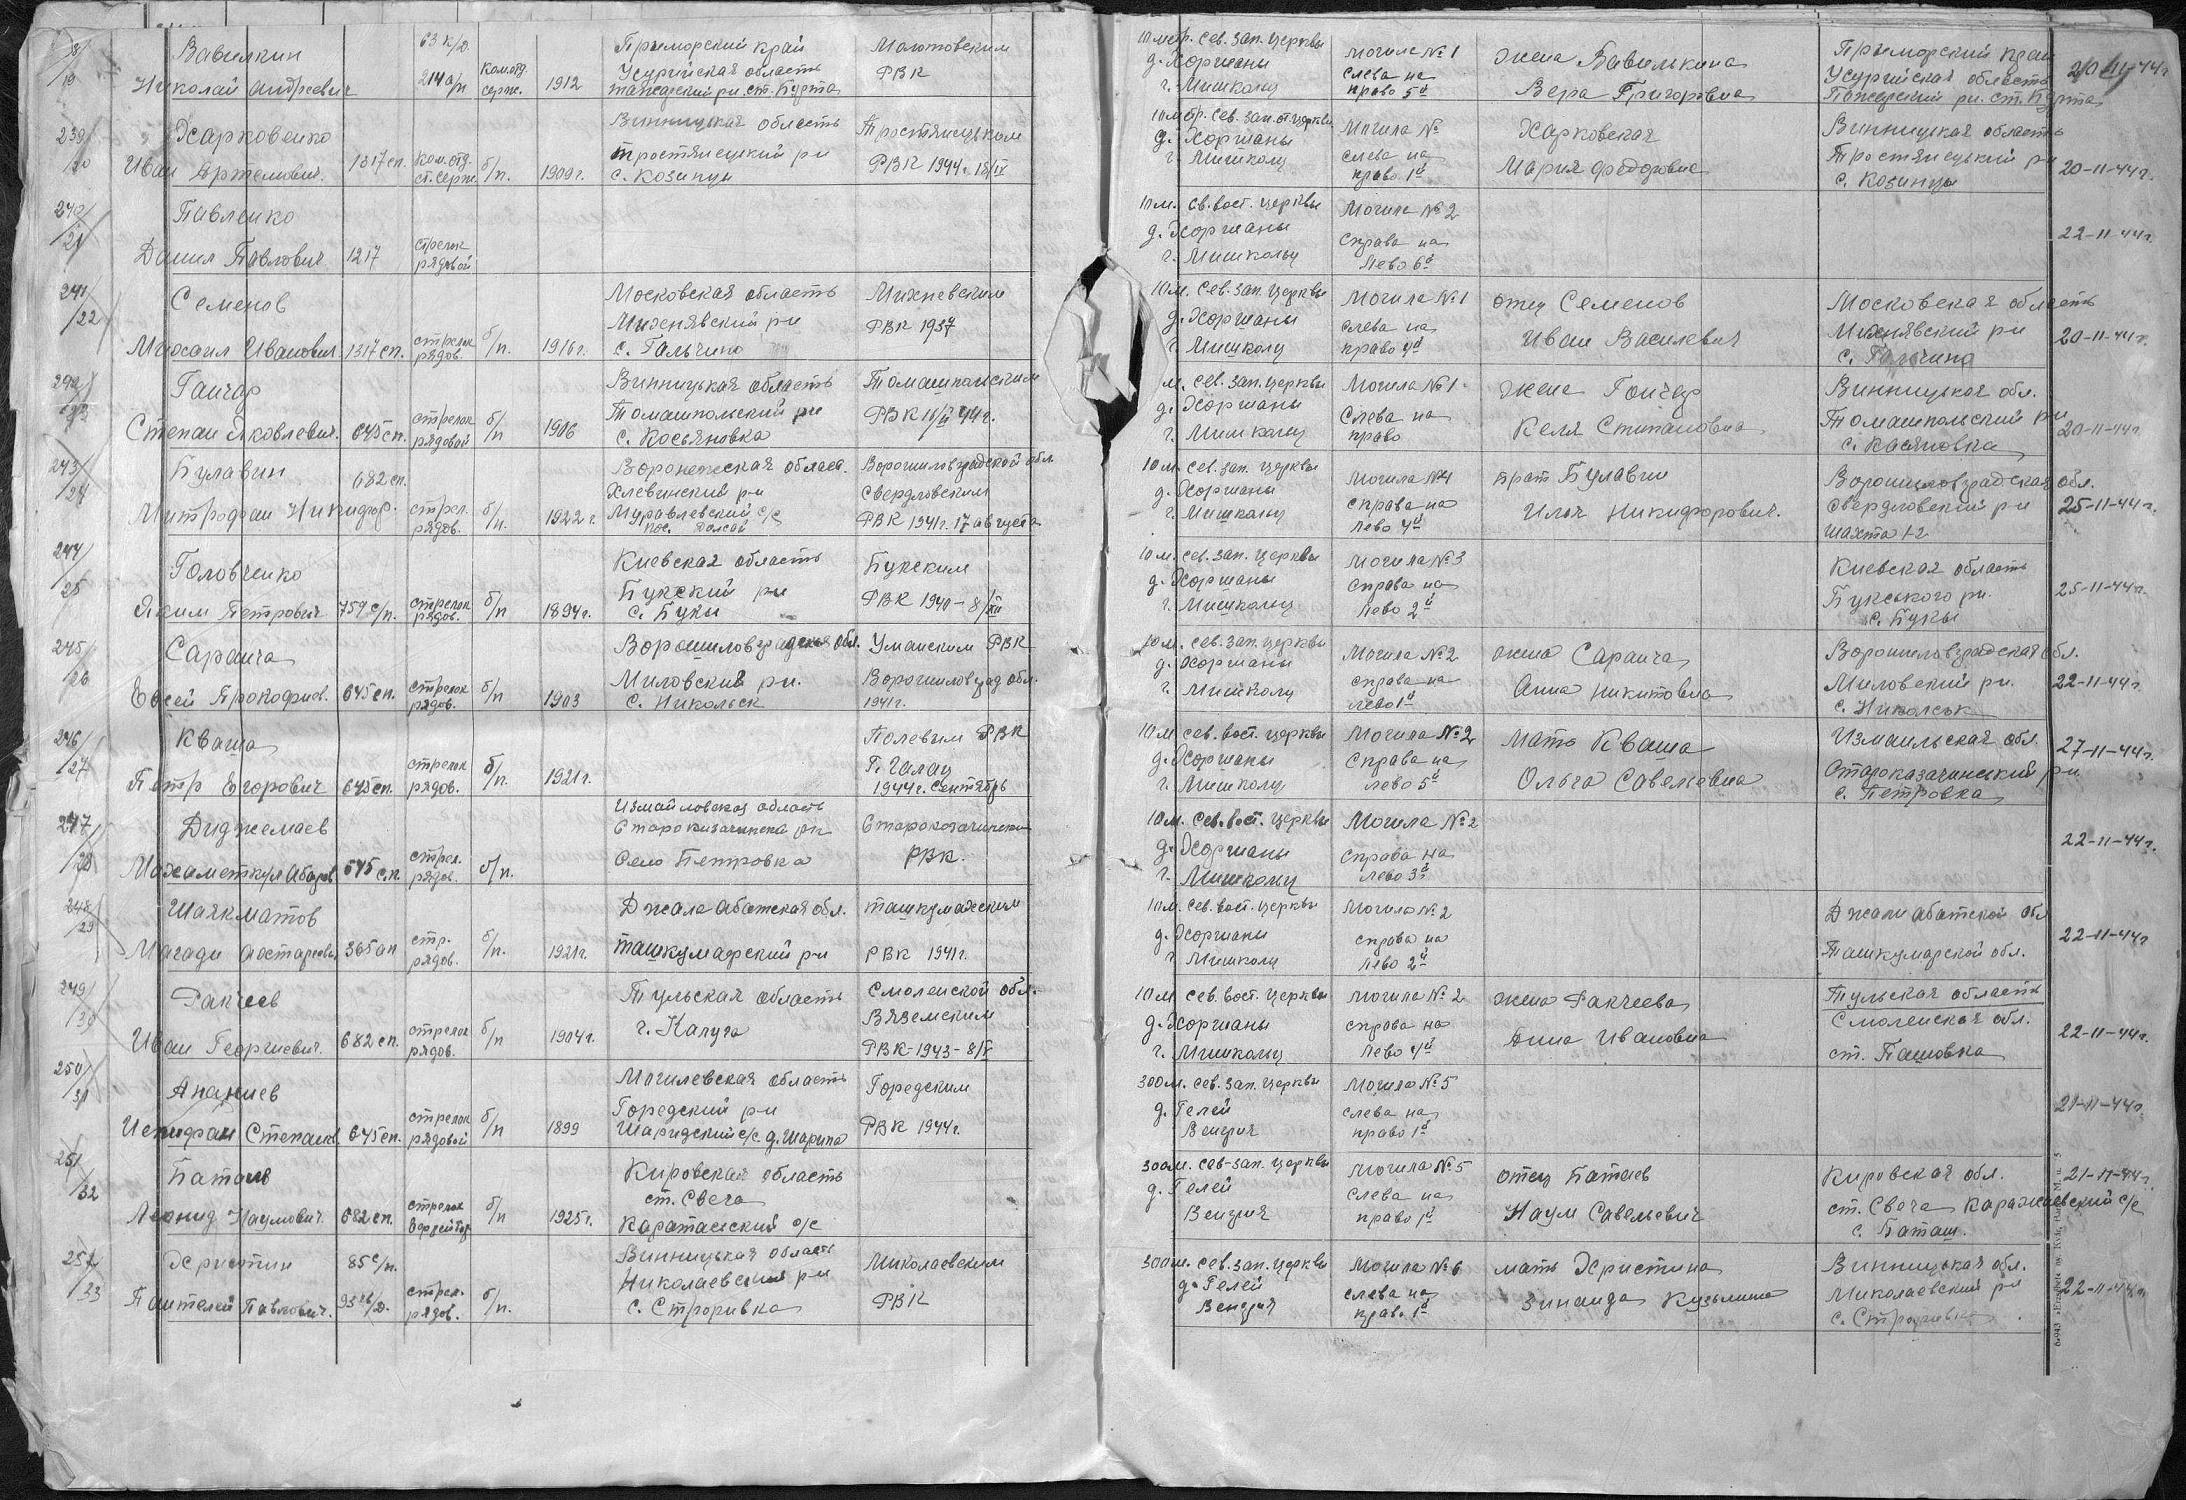 8/19
Вавилкин
Николай Андреевич
63 к/д
214 а/п
Ком.отд.
серж.
1912
Приморский край
Усурийская область
ст. Бурта
Молотовским
РВК
10 метр. сев. зап. церквы
д. Хоргианы
г. Мишкольц
Могила №1
слева на
право 5й
жена Бавилькина
Вера Григоровна
Приморский край
Усурийская область
Пожарский р-н. ст. Бурта
239/20
Харковенко
Иван Артемович.
1317 сп.
Ком.отд.
ст. серж.
б/п.
1909 г.
Винницькая область
Тростянецкий р-н
с. Козинцы
Тростянецьком
РВК 1944 г. 18/IV
10 мтр. сев. зап. от церквы
д. Хоргианы
г. Мишкольц
Могила №
слева на
право 1й
Харковская
Мария Федоровна
Винницкая область
Тростянецький р-н
с. Козинцы
20-11-44 г.
240/21
Павленко
Данил Павлович
1217
стрелок
рядовой
10 м. св. вост. церквы
д. Хоргианы
г. Мишкольц
Могила №2
справа на
лево 6й
22-11-44 г.
241/22
Семенов
Михаил Иванович.
1317 сп.
стрелок
рядов.
б/п.
1916 г.
Московская область
Михнявский р-н
с. Гальчино
Михневским
РВК 1937
10 м. сев. зап. церквы
д. Хоргианы
г. Мишкольц
Могила №1
слева на
право 4й
отец Семенов
Иван Василевич
Московская область
Михнявский р-н
с. Гальчино
20-11-44 г.
242/23
Гончар
Степан Яковлевич.
645 сп.
стрелок
рядовой
б/п
1906
Винницькая область
Томашпольский р-н
с. Косьяновка
Томашпольским
РВК 16/III 44 г.
м. сев. зап. церквы
д. Хоргианы
г. Мишкольц
Могила №1
Слева на
право
жена Гончар
Келя Стипановна
Винницькая обл.
Томашпольский р-н
с. Касяновка
20-11-44 г.
243/24
Булавин
Митрофан Никифор.
682 сп.
стрел.
рядов.
б/п.
1922 г.
Воронежская област.
Хлевинский р-н
Муравлевский с/с
Ворошиловградской обл.
Свердловским
РВК 1941 г. 17 августа
10 м. сев. зап. церквы
д. Хоргианы
г. Мишкольц
Могила №4
справа на
лево 4й
брат Булавин
Илья Никифорович.
Ворошиловградская обл.
Свердловский р-н
шахта 1-2
25-11-44 г.
244/25
Головченко
Яким Петрович
759 с/п.
стрелок
рядов.
б/п
1894 г.
Киевская область
Букский р-н
с. Буки
Букским
РВК 1940-8/XII
10 м. сев. зап. церквы
д. Хоргианы
г. Мишкольц
Могила №3
справа на
лево 2й
Киевская область
Букського р-н.
с. Букы
25-11-44 г.
245/26
Саранча
Евсей Прокофиев.
645 сп.
стрелок
рядов.
б/п
1903
Ворошиловградская обл.
Миловский р-н.
с. Никольск
Уманским РВК
Ворошиловград обл.
1941 г.
10 м. сев. зап. церквы
д. Хоргианы
г. Мишкольц
Могила №2
справа на
лево 1й
жена Саранча
Анна Никитовна
Ворошиловградская обл.
Миловский р-н.
с. Никольськ
22-11-44 г.
246/27
Кваша
Петр Егорович
645 сп.
стрелок
рядов.
б/п.
1921 г.
Полевым РВК
Г. Галац
1944 г. Сентябрь
10 м сев. вост. церквы
д. Хоргианы
г. Мишкольц
Могила №2
справа на
лево 5й
мать Кваша
Ольга Савельевна
Измаильская обл.
Староказачинський р-н
с. Петровка
27-11-44 г.
247/28
Диджемаев
645 с.п.
стрел.
рядов.
б/п.
Измайловская область
Староказачинска р-н
Село Петровка
Староказачинским
РВК.
10 м. сев. вост. церквы
д. Хоргианы
г. Мишкольц
Могила №2
справа на
лево 3й
22-11-44 г.
248/29
Шаякматов
365 ап
стр.
рядов.
б/п.
1921 г.
Джала абатская обл.
ташкумарский р-н
ташкумахским
РВК 1941 г.
10 м. сев. вост. церквы
д. Хоргианы
г. Мишкольц
Могила №2
справа на
лево 2й
Джали абатской обл
Ташкумарской обл.
22-11-44 г
249/30
Факчеев
Иван Георгиевич.
682 сп.
стрелок
рядов.
б/п
1904 г.
Тульская область
г. Калуга
Смоленской обл.
Вяземским
РВК-1943-8/V
10 м сев. вост. церквы
д. Хоргианы
г. Мишкольц
Могила №2
справа на
лево 4й
жена Факчеева
Анна Ивановна
Тульская область
Смоленская обл.
ст. Пашовка
22-11-44 г.
250/31
Ананиев
645 сп.
стрелок
рядовой
б/п
1899
Могилевская область
Горедский р-н
Шаридский с/с д. Шарипа
Горедским
РВК 1944 г.
300 м. сев. зап. церквы
д. Гелей
Венгрия
Могила №5
слева на
право 1й
21-11-44 г.
251/32
Батаев
Леонид Наумович.
682 сп.
стрелок
б/п
1925 г.
Кировская область
ст. Свеча
Каратаевский с/с
300 м. сев-зап. церквы
д. Гелей
Венгрия
Могила №5
слева на
право 1й
отец Батаев
Наум Савельевич
Кировская обл.
ст. Свеча с/с
с. Баташ.
21-11-44 г.
252/33
Христин
Пантелей Павлович.
85 с/п.
стрел.
рядов.
б/п.
Винницькая область
Николаевский р-н
с. Строривка
Миколаевским
РВК
300 м. сев. зап. церквы
д. Гелей
Венгрия
Могила №6
слева на
право 1й
мать Христина
Зинаида Кузьмина
Винницькая обл.
Миколаевский р-н
22-11-44 г.